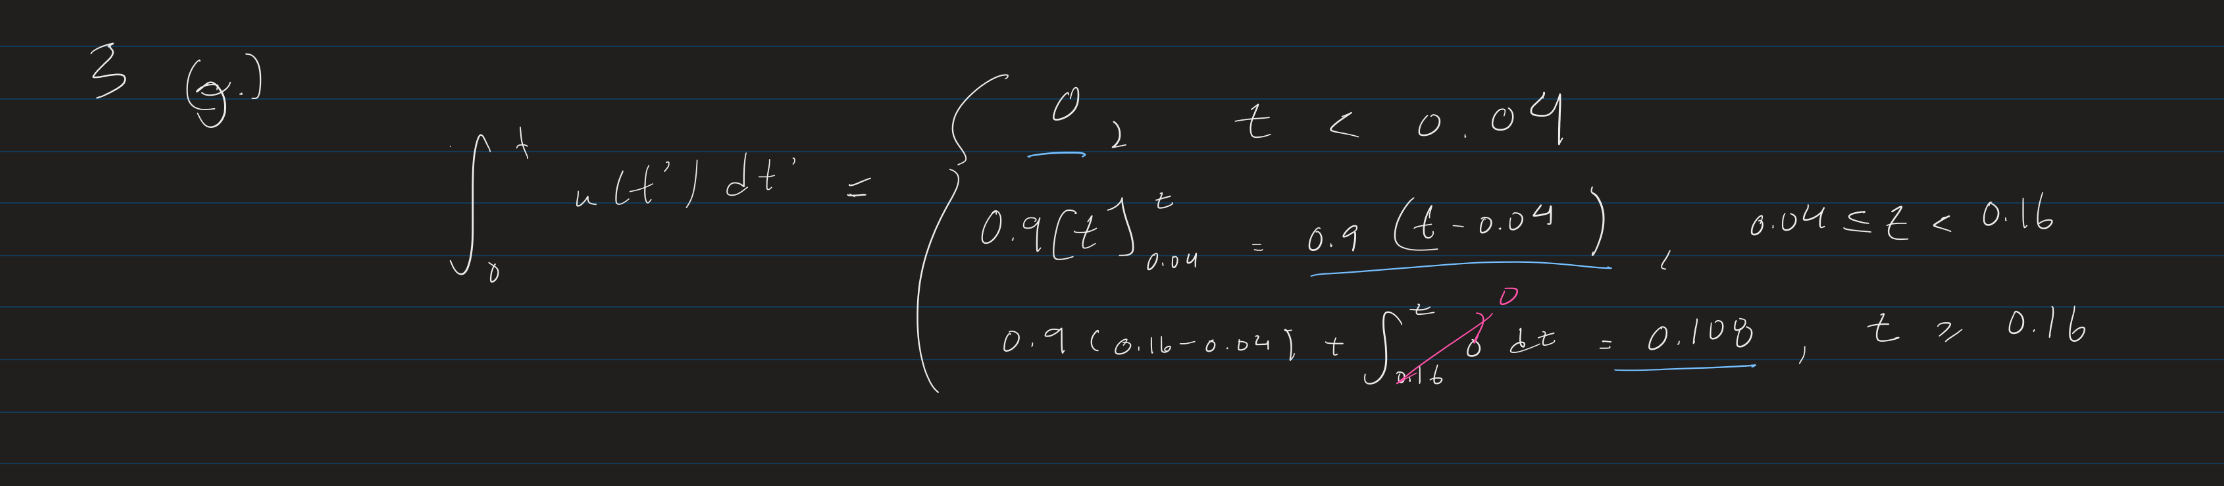 3 (g.)
∫₀ᵗ u(t') dt' = { 0, t < 0.04
0.9[t]ᵗ₀.₀₄ = 0.9 (t - 0.04), 0.04 ≤ t < 0.16
0.9 (0.16 - 0.04) + ∫ᵗ₀.₁₆ 0 dt 0 = 0.108, t ≥ 0.16